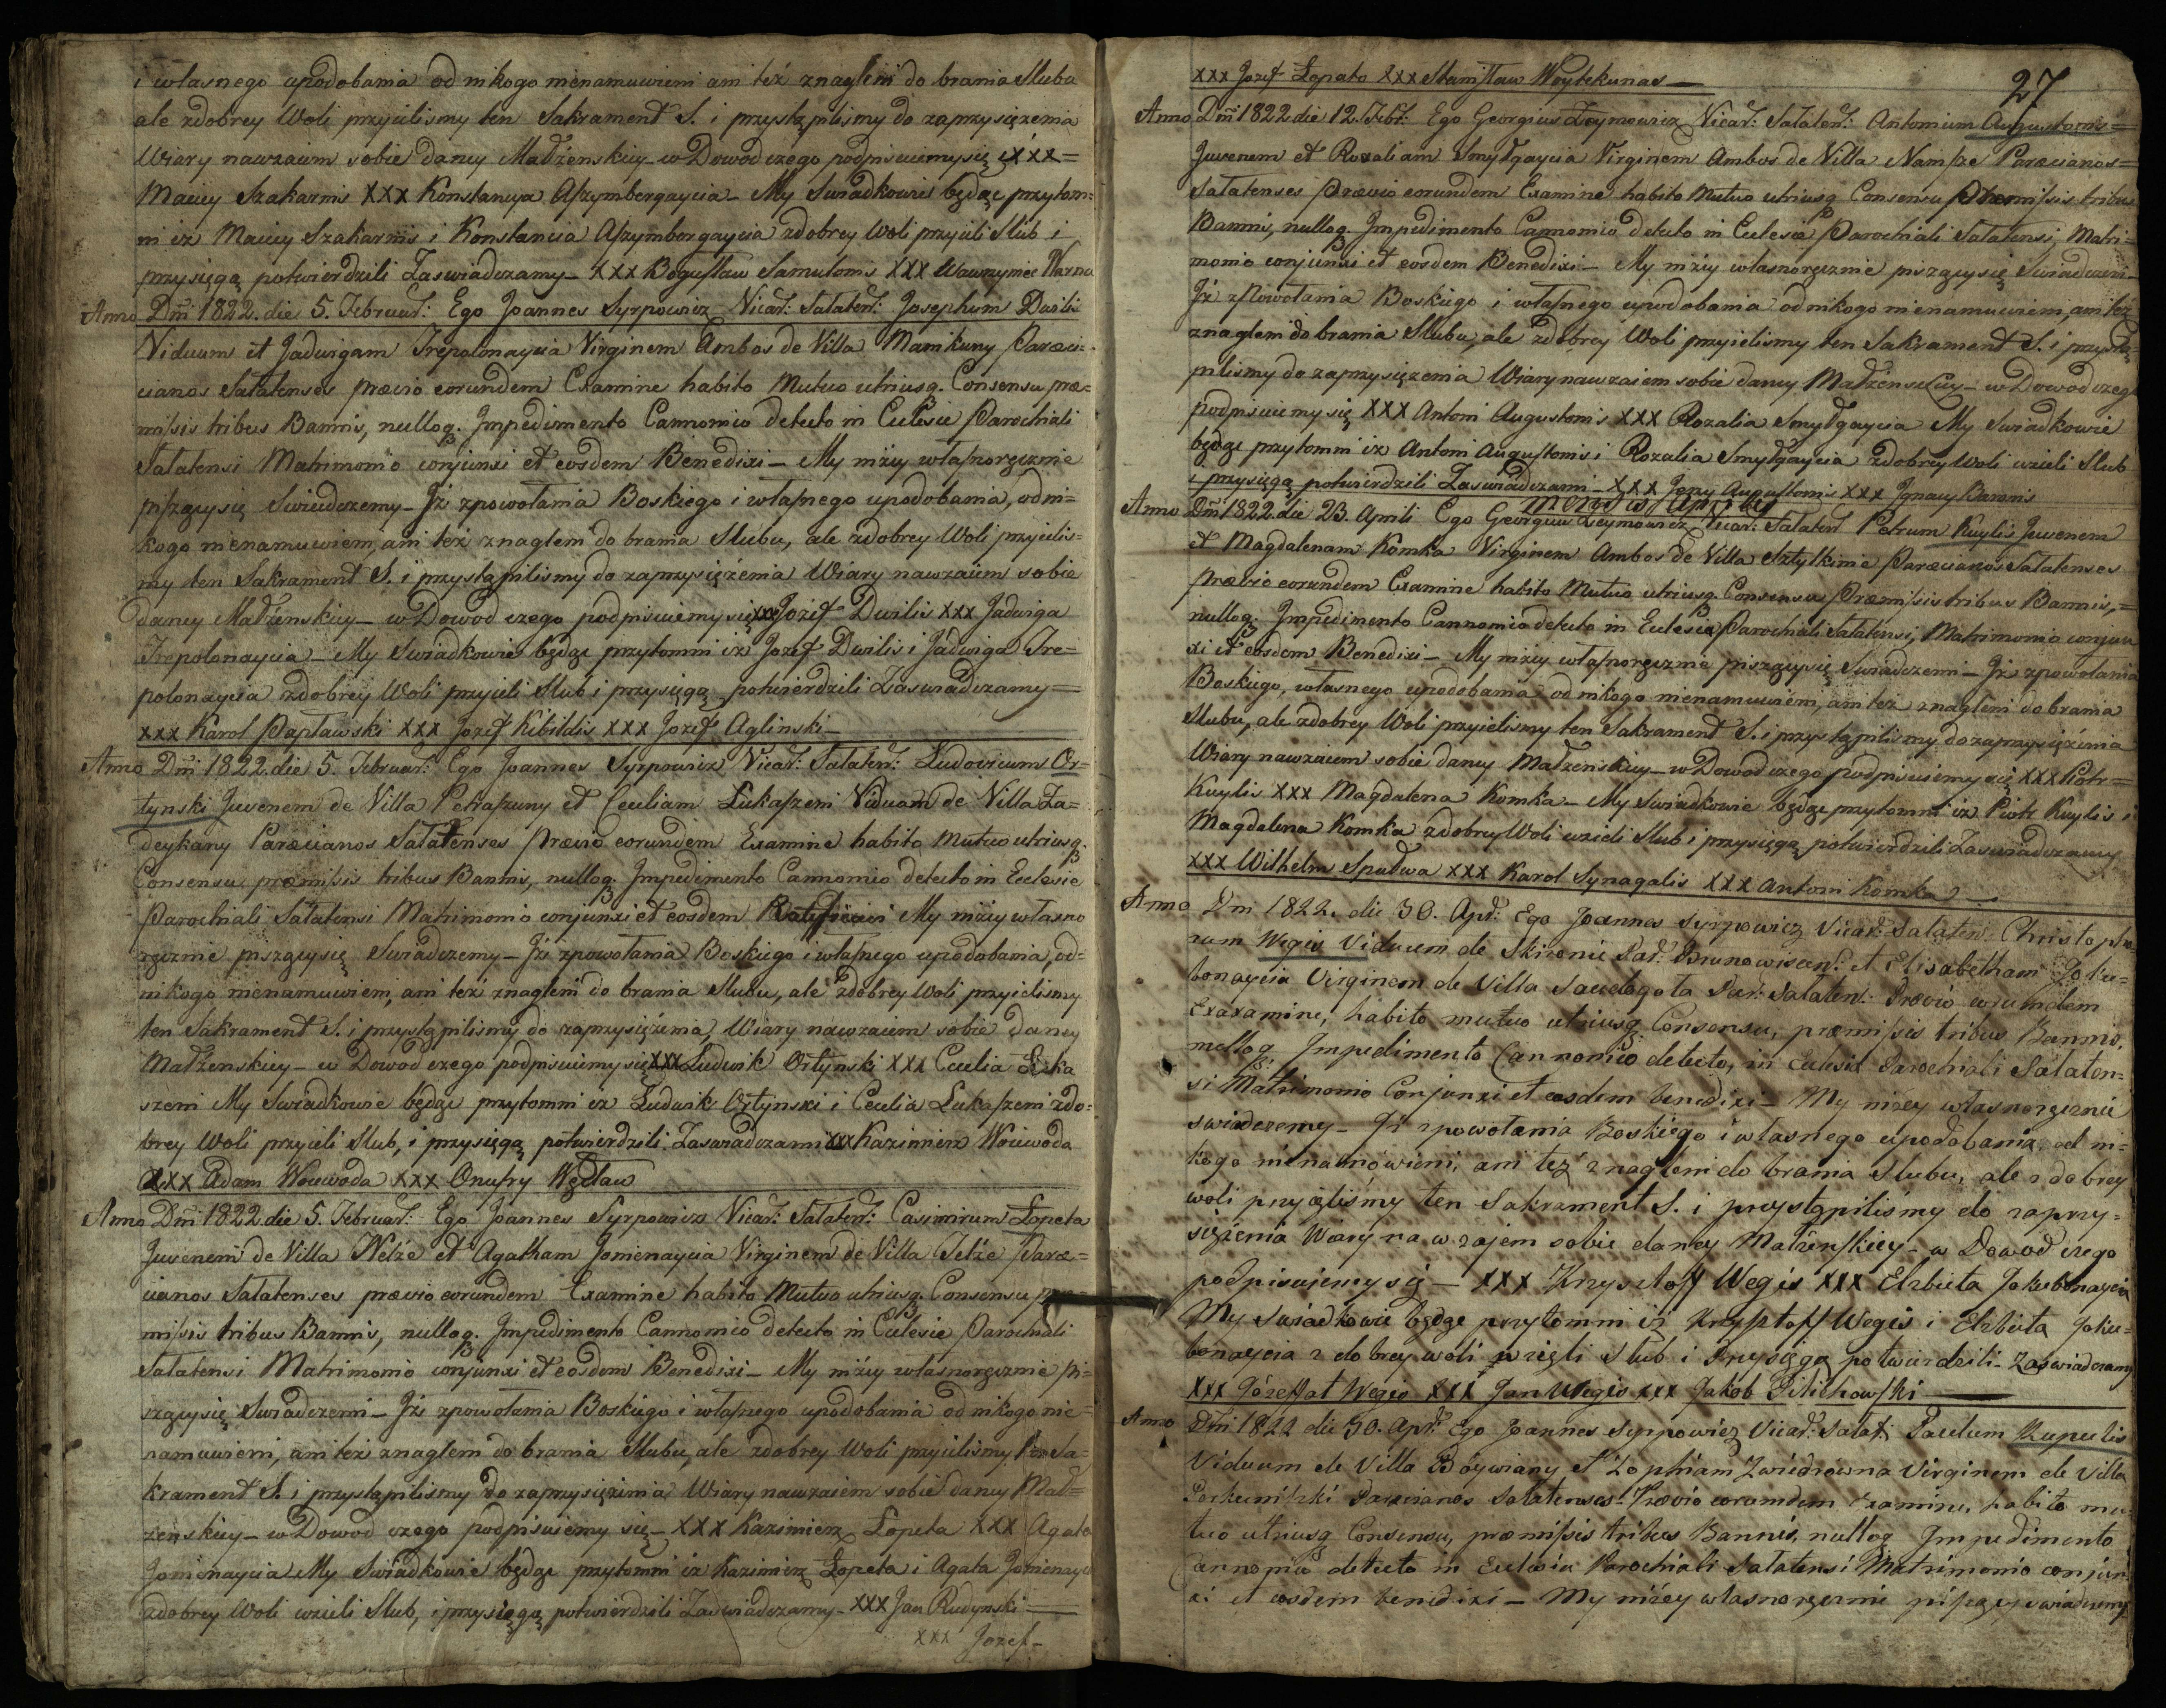 i własnego upodobania od nikogo nienamuwieni ani też znagleni do brania Slubu
ale zdobrey Woli przyielismy ten Sakrament S. i przystąpilismy do zaprzysięzenia
Wiary nawzaiem sobie daney Madżenskiey – w Dowod czego podpisuiemy się xxx =
Maciey Szakarnis XXX Konstancya Aszymbergaycia – My Swiadkowie będąc przytom=
ni iz Maciey Szakarnis i Konstancia Aszymborgaycia zdobrey Woli przyieli Slub i
przysięgą potwierdzili Zaswiadczamy – XXX Bogusław Samulonis XXX Wawrzyniec Warna
Anno Dni 1822. die 5. Februar: Ego Joannes Syrpowicz Vicar: Salaten: Josephum Dwilis
Viduum et Jadwigam Trepolonaycia Virginem Ambos de Villa Manikuny Paræci=
cianos Salatenses prævio eorundem Examine habito Mutuo utriusq. Consensu præ=
missis tribus Bannis, nulloq. Impedimento Cannonico detecto in Eclesia Parochiali
Salatensi Matrimonio conjunxi et eosdem Benedixi – My niżey własnoręcznie
piszący się Swiadczemy – Iż zpowołania Boskiego i własnego upodobania, od ni=
kogo nienamuwieni, ani też znagleni do brania Slubu, ale zdobrey Woli przyielis=
my ten Sakrament S. i przystąpilismy do zaprzysiężenia Wiary nawzaiem sobie
daney Małżenskiey – w Dowod czego podpisuiemy się xx Jozef Dwilis XXX Jadwiga
Trepolonaycia – My Swiadkowie będąc przytomni iż Jozef Dwilis i Jadwiga Tre=
polonaycia zdobrey Woli przyieli Slub i przysięgą potwierdzili Zaswiadczamy =
XXX Karol Papławski XXX Jozef Kibildis XXX Jozef Aglinski –
Anno Dni 1822. die 5. Februar: Ego Joannes Syrpowicz Vicar: Salaten: Ludovicum Or=
tynski Juvenem de Villa Petraszuny et Ceciliam Lukaszeni Viduam de Villa Za=
deykany Paræcianos Salatenses Prævio eorundem Examine habito Mutuo utriusq.
Consensu præmissis tribus Bannis, nulloq. Impedimento Cannonico detecto in Eclesia
Parochiali Salatensi Matrimonio conjunxi et eosdem Ratificavi My niżey własno
ręcznie piszący się Swiadczemy – Iż zpowołania Boskiego i własnego upodobania, od=
nikogo nienamuwieni, ani też znagleni do brania Slubu, ale zdobrey Woli przyielismy
ten Sakrament S. i przystąpilismy do zaprzysiężenia, Wiary nawzaiem sobie daney
Małżenskiey – w Dowod czego podpisuiemy się XXX Ludwik Ortynski XXX Cecilia Luka
szeni My Swiadkowie będąc przytomni iz Ludwik Ortynski i Cecilia Lukaszeni zdo=
brey Woli przyieli Slub, i przysięgą potwierdzili Zaswiadczami xxx Kazimierz Woiewoda
XXX Adam Woiewoda XXX Onufry Węcław
Anno Dni 1822. die 5. Februar: Ego Joannes Syrpowicz Vicar: Salaten: Casimirum Łopeta
Juvenem de Villa Nelże et Agatham Jomenaycia Virginem de Villa Jelże Paræ=
cianos Salatenses prævio eorundem Examine habito Mutuo utriusq. Consensu præ=
missis tribus Bannis, nulloq. Impedimento Cannonico detecto in Eclesia Parochiali
Salatensi Matrimonio conjunxi et eosdem Benedixi – My niżey własnoręcznie pi=
szący się Swiadczemi – Iż zpowołania Boskiego i własnego upodobania od nikogo nie=
namuwieni, ani też znagleni do brania Slubu, ale zdobrey Woli przyielismy ten Sa=
krament S. i przystąpilismy do zaprzysięzenia Wiary nawzaiem sobie daney Mał=
zenskiey – w Dowod czego podpisuiemy się – XXX Kazimierz Łopeta XXX Agata
Jomenaycia My Swiadkowie będąc przytomni iz Kazimierz Łopeta i Agata Jomenayc
zdobrey Woli wzieli Slub, i przysięgą potwierdzili Zaswiadczamy – XXX Jan Rudynski =
xxx Jozef –
27
XXX Jozef Łopato XXX Stanisław Woytekunas –
Anno Dni 1822 die 12. Febr: Ego Georgius Leymowicz Vicar: Salaten: Antonium Augustonis =
Juvenem et Rozaliam Smylgaycia Virginem Ambos de Villa Namsze Paræcianos =
Salatenses Prævio eorundem Examine habito Mutuo utriusq. Consensu Præmissis tribus
Bannis, nulloq. Impedimento Cannonico detecto in Eclesia Parochiali Salatensi, Matri=
monio conjunxi et eosdem Benedixi – My niżey własnoręcznie piszący się Swiadczemi –
Iż zpowołania Boskiego i własnego upodobania od nikogo nienamuwieni, ani też
znagleni do brania Slubu, ale zdobrey Woli przyielismy ten Sakrament S. i przystą=
pilismy do zaprzysięzenia Wiary nawzaiem sobie daney Małżenskiey – w Dowod czego
podpisuiemy się XXX Antoni Augustonis XXX Rozalia Smylgaycia My Swiadkowie
będąc przytomni iz Antoni Augustonis i Rozalia Smylgaycia zdobrey Woli wzieli Slub
i przysięgą potwierdzili Zaswiadczami – XXX Jerzy Augustonis XXX Ignacy Bannis
Mensis Aprilis
Anno Dni 1822. die 23. Aprili Ego Georgius Leymowicz Vicar: Salaten Petrum Kuylis Juvenem
et Magdalenam Komka Virginem Ambos de Villa Sztylkinie Paræcianos Salatenses
Prævio eorundem Examine habito Mutuo utriusq. Consensu Præmissis tribus Bannis, =
nulloq. Impedimento Cannonico detecto in Eclesia Parochiali Salatensi, Matrimonio conjun
xi et eosdem Benedixi – My niżey własnoręcznie piszący się Swiadczemi – Iż zpowołania
Boskiego, własnego upodobania od nikogo nienamuwieni, ani też znagleni do brania
Slubu, ale zdobrey Woli przyielismy ten Sakrament S. i przystąpilismy do zaprzysiężenia
Wiary nawzaiem sobie daney Małzenskiey – w Dowod czego podpisuiemy się XXX Piotr =
Kuylis XXX Magdalena Komka – My Swiadkowie będąc przytomni iż Piotr Kuylis i
Magdalena Komka zdobrey Woli wzieli Slub i przysięgą potwierdzili Zaswiadczamy
XXX Wilhelm Spudwa XXX Karol Synagalis XXX Antoni Komka –
Anno Dni 1822. die 30. Apr: Ego Joannes Syrpowicz Vicar: Salaten: Christopho
rum Wegis Viduum de Skironie Par: Brunowiscen: et Elisabetham Joku=
bonaycia Virginem de Villa Saudagota Par: Salaten: Prævio eorumdem
Exaxamine, habito mutuo utriusq Consensu, præmissis tribus Bannis,
nulloq. Impedimento Cannonico detecto, in Eclesia Parochiali Salaten=
si Matrimonio Conjunxi et eosdem benedixi – My niżey własnoręcznie
swiadczemy – Iż zpowołania Boskiego i własnego upodobania, od ni=
kogo nienamówieni, ani też znagleni do brania Slubu, ale zdobrey
woli przyięliśmy ten Sakrament S. i przystąpiliśmy do zaprzy=
siężenia Wiary nawzajem sobie daney Małżenskiey – w Dowód czego
podpisujemy się – XXX Krzysztoff Wegis XXX Elzbieta Jokubonaycia
My Swiadkowie będąc przytomni iż Krzysztoff Wegis i Elzbieta Joku=
bonaycia z dobrey woli wzięli Slub i Przysięgą potwierdzili – Zaswiadczamy
XXX Józeffat Wegis XXX Jan Wegis xxx Jakob Pilichowski –
Anno Dni 1822 die 30. Apr: Ego Joannes Syrpowicz Vicar: Salat: Paulum Kupulis
Viduum de Villa Boywiany et Zophiam Zwiedrowna Virginem de Villa
Paræcianos Salatenses Prævio eorumdem Examine, habito mu=
tuo utriusq Consensu, præmissis tribus Bannis, nulloq Impedimento
Cannonico detecto in Eclesia Parochiali Salatensi Matrimonio conjun=
xi et eosdem benedixi – My niżey własnoręcznie piszący swiadczemy